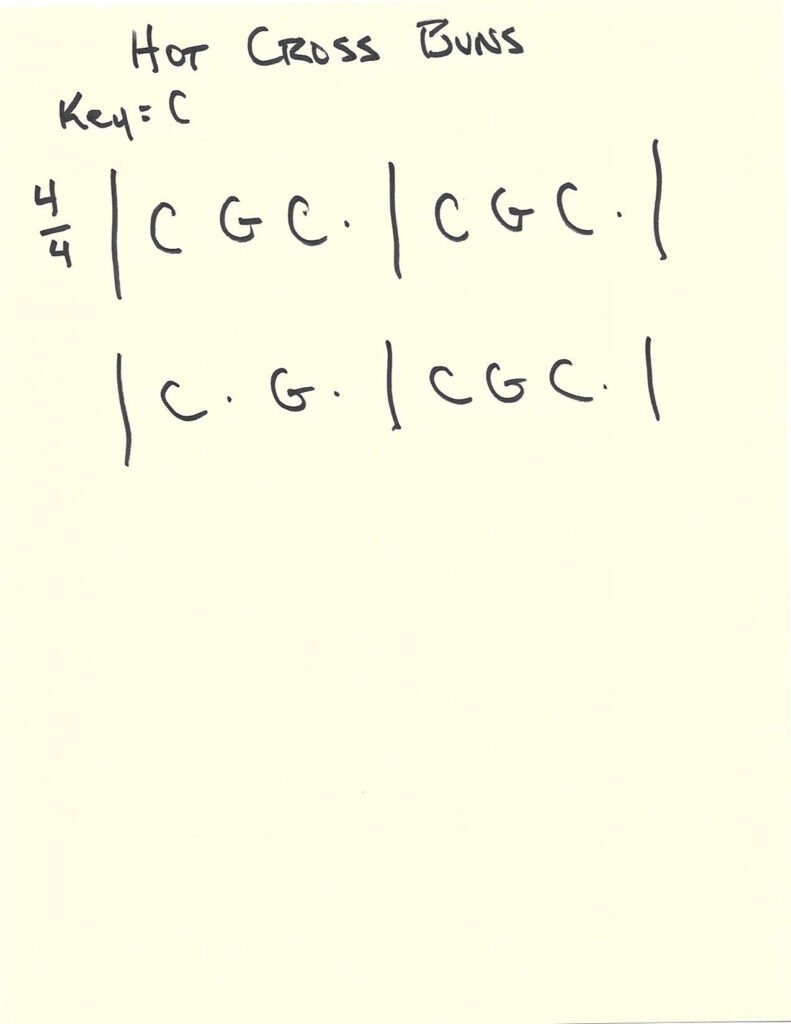 Hot Cross Buns
Key = C
4/4 | C G C . | C G C . |
| C . G . | C G C . |